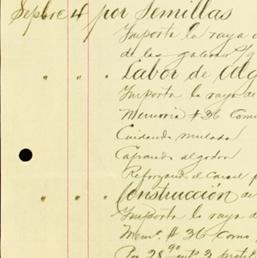 Sepbre 4 por Semillas
Importa la raya d
de las galeras
" " " Labor de Alg
Importa la raya de
Memoria # 36 como
Cuidando mulada
Capeando algodon
Reforzando el Canal p
" " " Construcción de
Importa la raya d
Mem. # 36 como